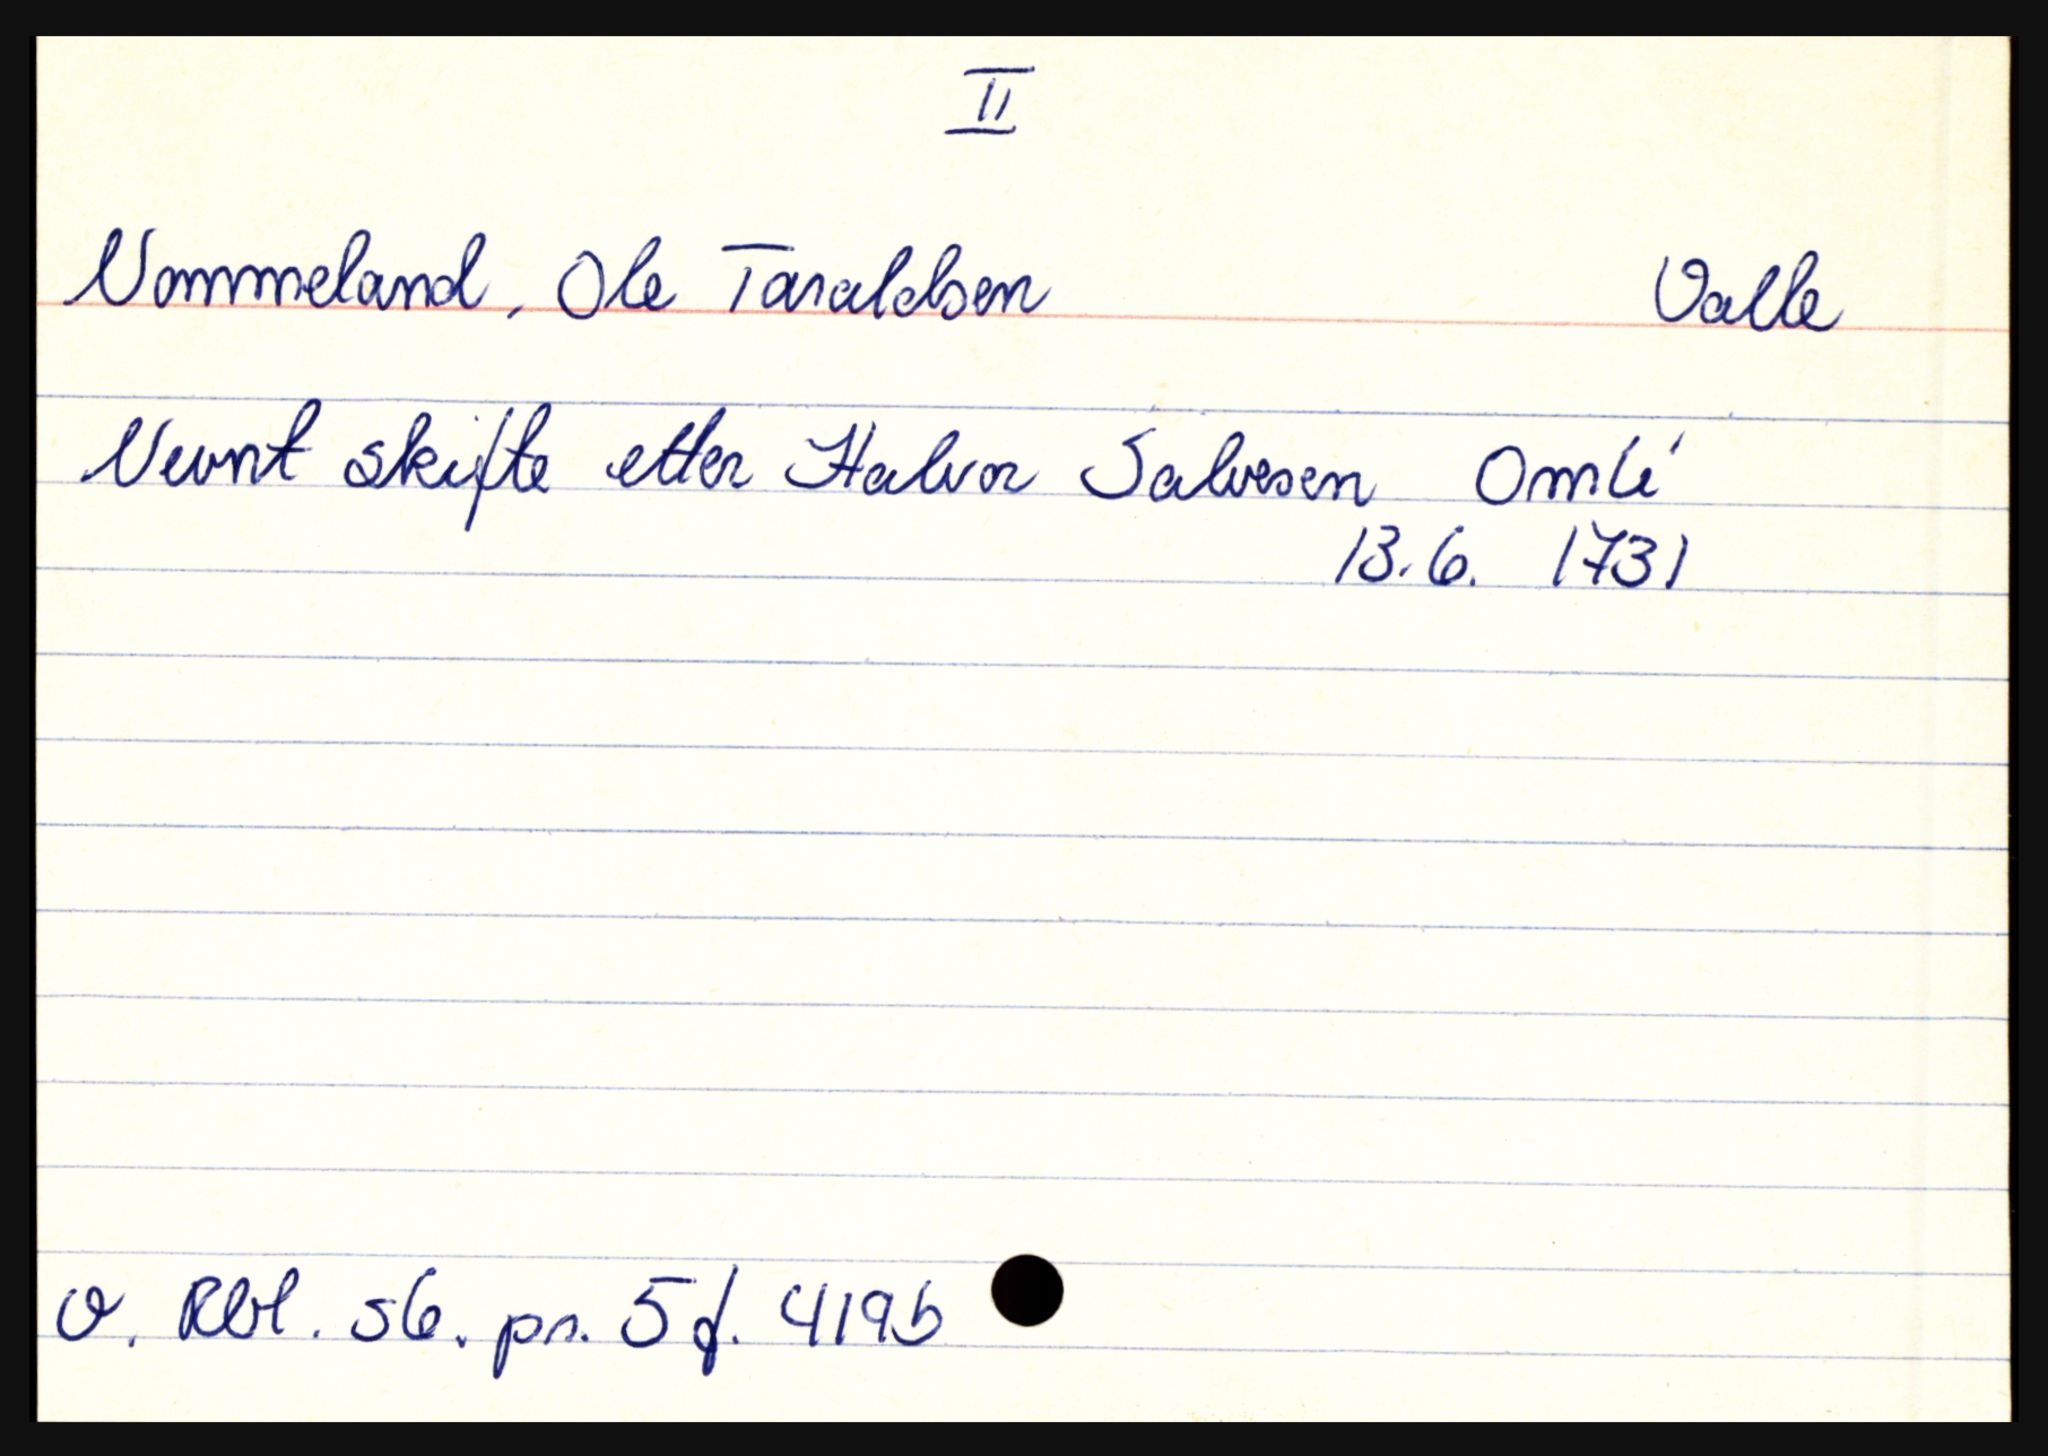 II
Nommeland, Ole Taraldsen Valle
Nevnt skifte etter Halvor Salvesen Omli'
13.6. 1731
V. Rbl. s6. pr. 5 f. 419b